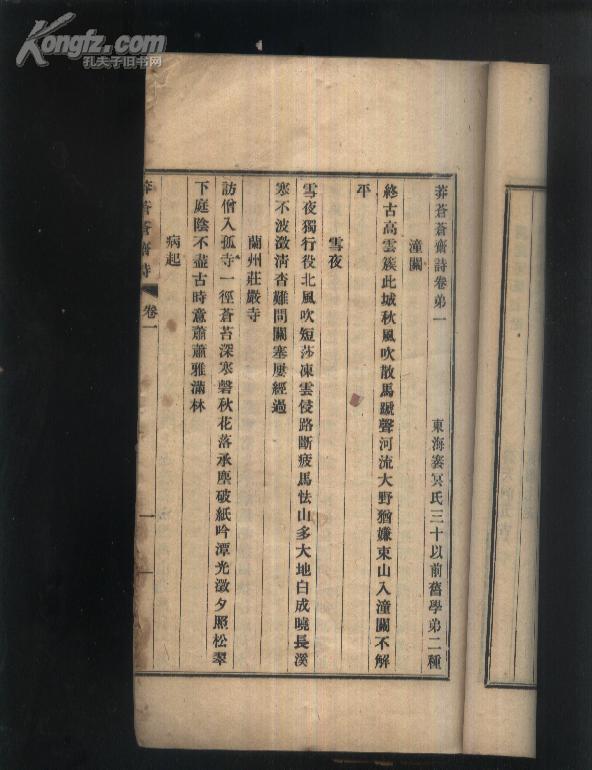 Kongfz.com
孔夫子旧书网
莽蒼蒼齋詩卷弟一　東海褰冥氏三十以前舊學弟二種
潼關
終古高雲簇此城秋風吹散馬蹏聲河流大野猶嫌束山入潼關不解
平
雪夜
雪夜獨行役北風吹短莎凍雲侵路斷疲馬怯山多大地白成曉長溪
寒不波澂清杳難問關塞屢經過
蘭州莊嚴寺
訪僧入孤寺一徑蒼苔深寒磬秋花落承塵破紙吟潭光澂夕照松翠
下庭陰不盡古時意蕭蕭雅滿林
病起
莽蒼蒼齋詩　卷一
一